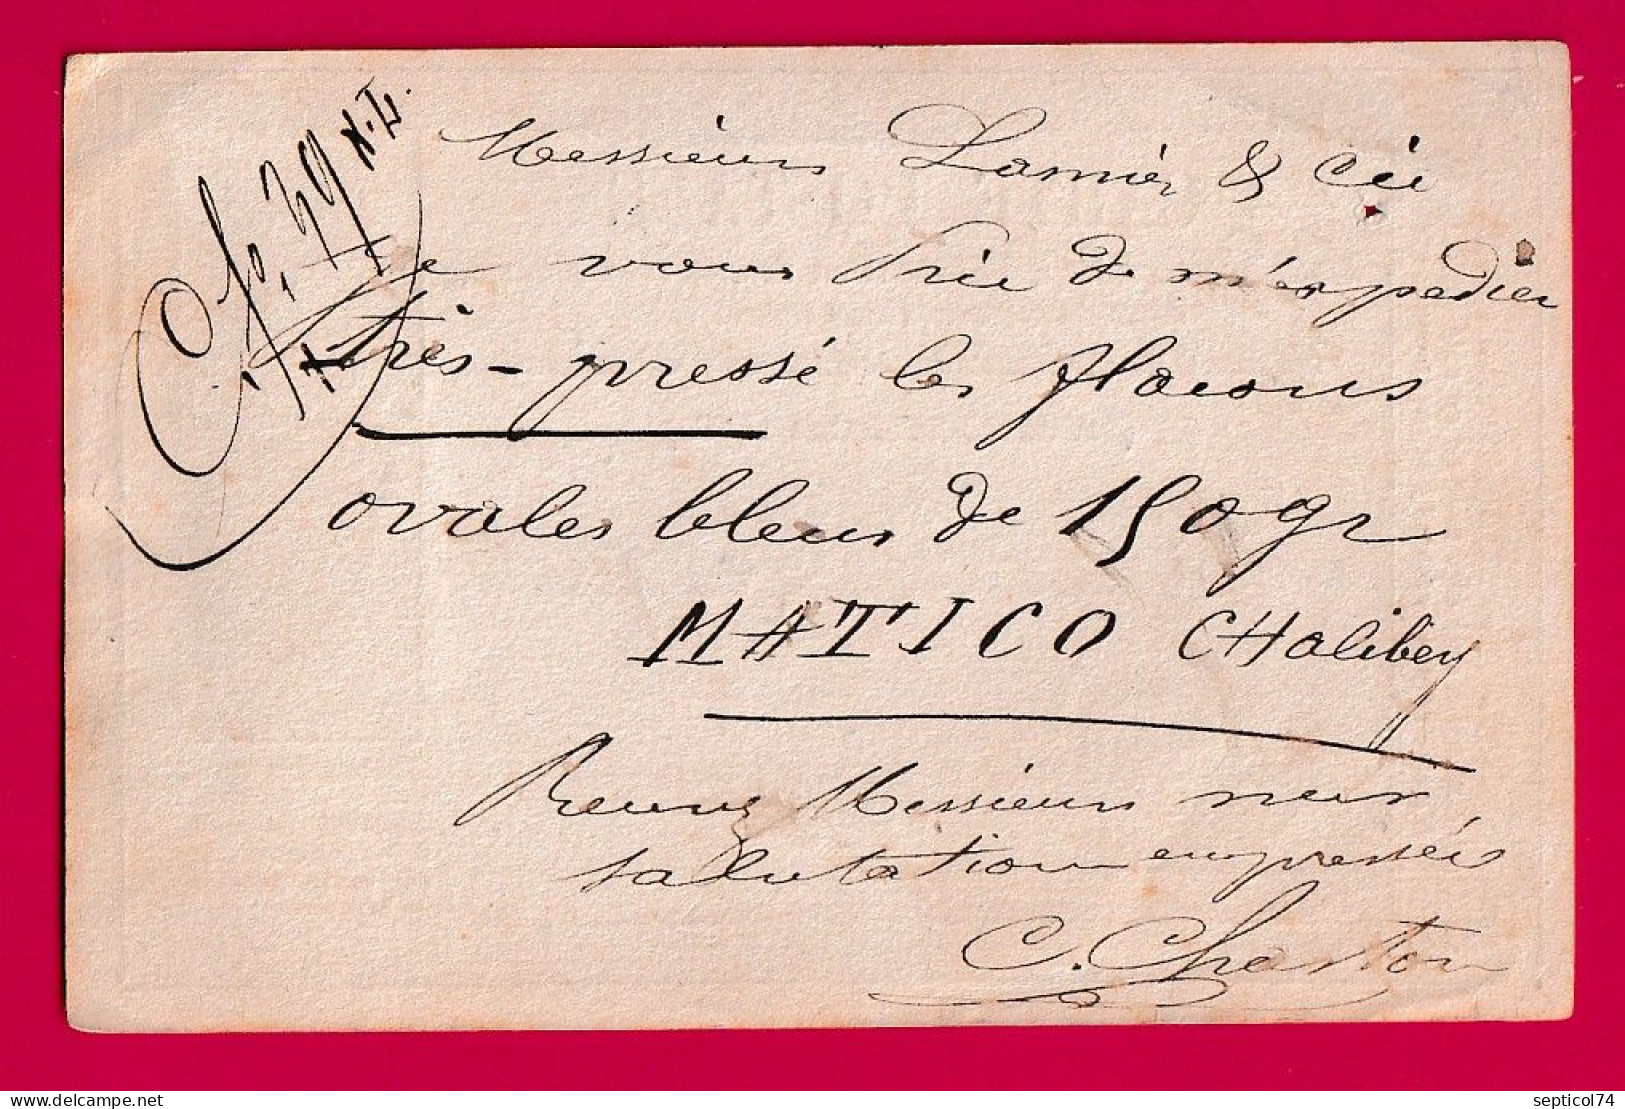 Messieurs Lamier & Cie
Je vous Prie de m'expedier
très-pressé les flacons
ovales bleus de 150 gr
MATICO CHalibey
Recevez Messieurs mes
salutation empressées
C. Charton
39 N.L.
septicol74